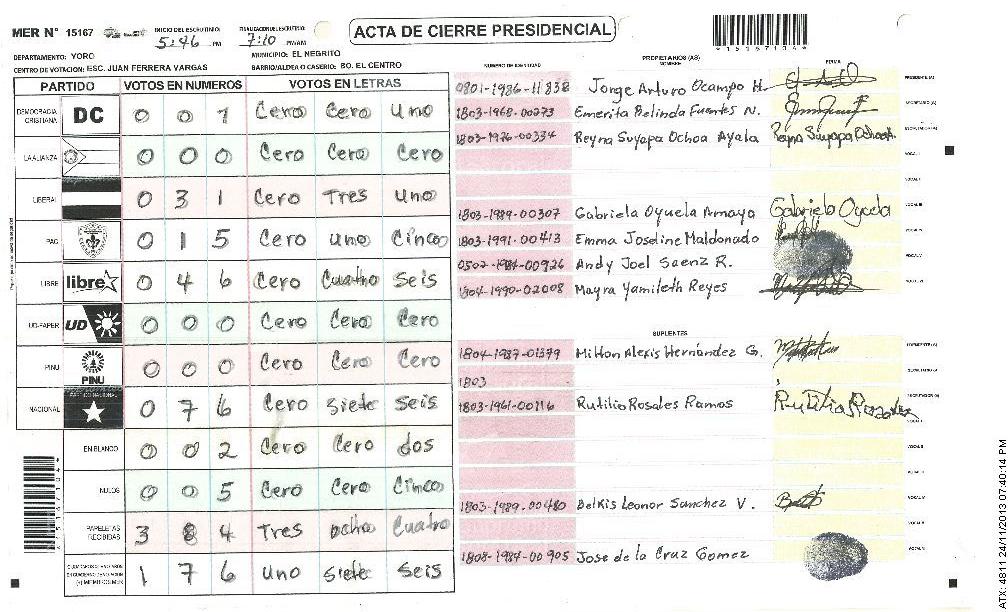 MER N° 15167
INICIO DEL ESCRUTINIO: 5:46 PM
FINALIZACION DEL ESCRUTINIO: 7:10 PM/AM
ACTA DE CIERRE PRESIDENCIAL
DEPARTAMENTO: YORO
MUNICIPIO: EL NEGRITO
CENTRO DE VOTACION: ESC. JUAN FERRERA VARGAS
BARRIO/ALDEA O CASERIO: BO. EL CENTRO
PARTIDO VOTOS EN NUMEROS VOTOS EN LETRAS
DEMOCRACIA CRISTIANA DC 0 0 1 Cero Cero Uno
LA ALIANZA 0 0 0 Cero Cero Cero
LIBERAL 0 3 1 Cero Tres Uno
PAC 0 1 5 Cero Uno Cinco
LIBRE libre 0 4 6 Cero Cuatro Seis
UD-FAPER UD 0 0 0 Cero Cero Cero
PINU PINU 0 0 0 Cero Cero Cero
NACIONAL PARTIDO NACIONAL 0 7 6 Cero Siete Seis
EN BLANCO 0 0 2 Cero Cero dos
NULOS 0 0 5 Cero Cero Cinco
PAPELETAS RECIBIDAS 3 8 4 Tres ocho Cuatro
1 7 6 Uno Siete Seis
PROPIETARIOS (AS)
NUMERO DE IDENTIDAD NOMBRE FIRMA
0801-1986-11838 Jorge Arturo Ocampo H. PRESIDENTE (A)
1803-1968-00273 Emerita Belinda Fuentes N. SECRETARIO (A)
1803-1976-00334 Reyna Suyapa Ochoa Ayala Reyna Suyapa Ochoa A
VOCAL I
1803-1989-00307 Gabriela Oyuela Amaya Gabriela Oyuela
1803-1991-00413 Emma Joseline Maldonado
0502-1984-00926 Andy Joel Saenz R.
1804-1990-02008 Mayra Yamileth Reyes
SUPLENTES
1804-1987-01379 Milton Alexis Hernández G.
1803
1803-1961-00116 Rutilio Rosales Ramos Rutilio Rosales
1803-1989-00480 Belkis Leonor Sanchez V.
1808-1984-00905 Jose de la Cruz Gomez
ATX: 4811 24/11/2013 07:40:14 PM